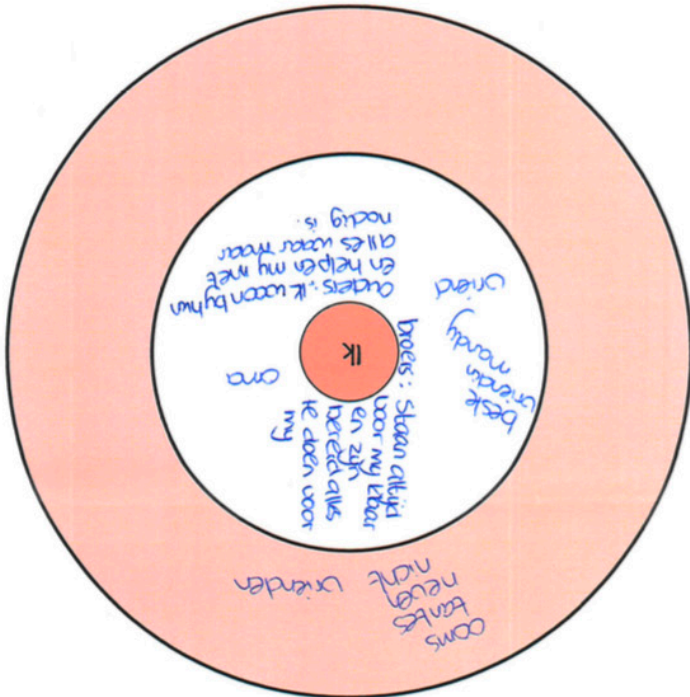 Ik
ouders: ik woon by hun
en helpen my met
alles waar maar
nodig is.
broers: staan altijd
voor my klaar
en zijn
bereid alles
te doen voor
my
oma
vriend
beste
vriendin
mandy
ooms
tantes
neven
nicht
vrienden